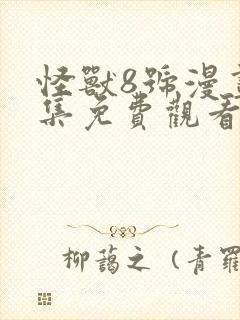 怪獸8號漫
集免費觀看
柳藹之（青羅